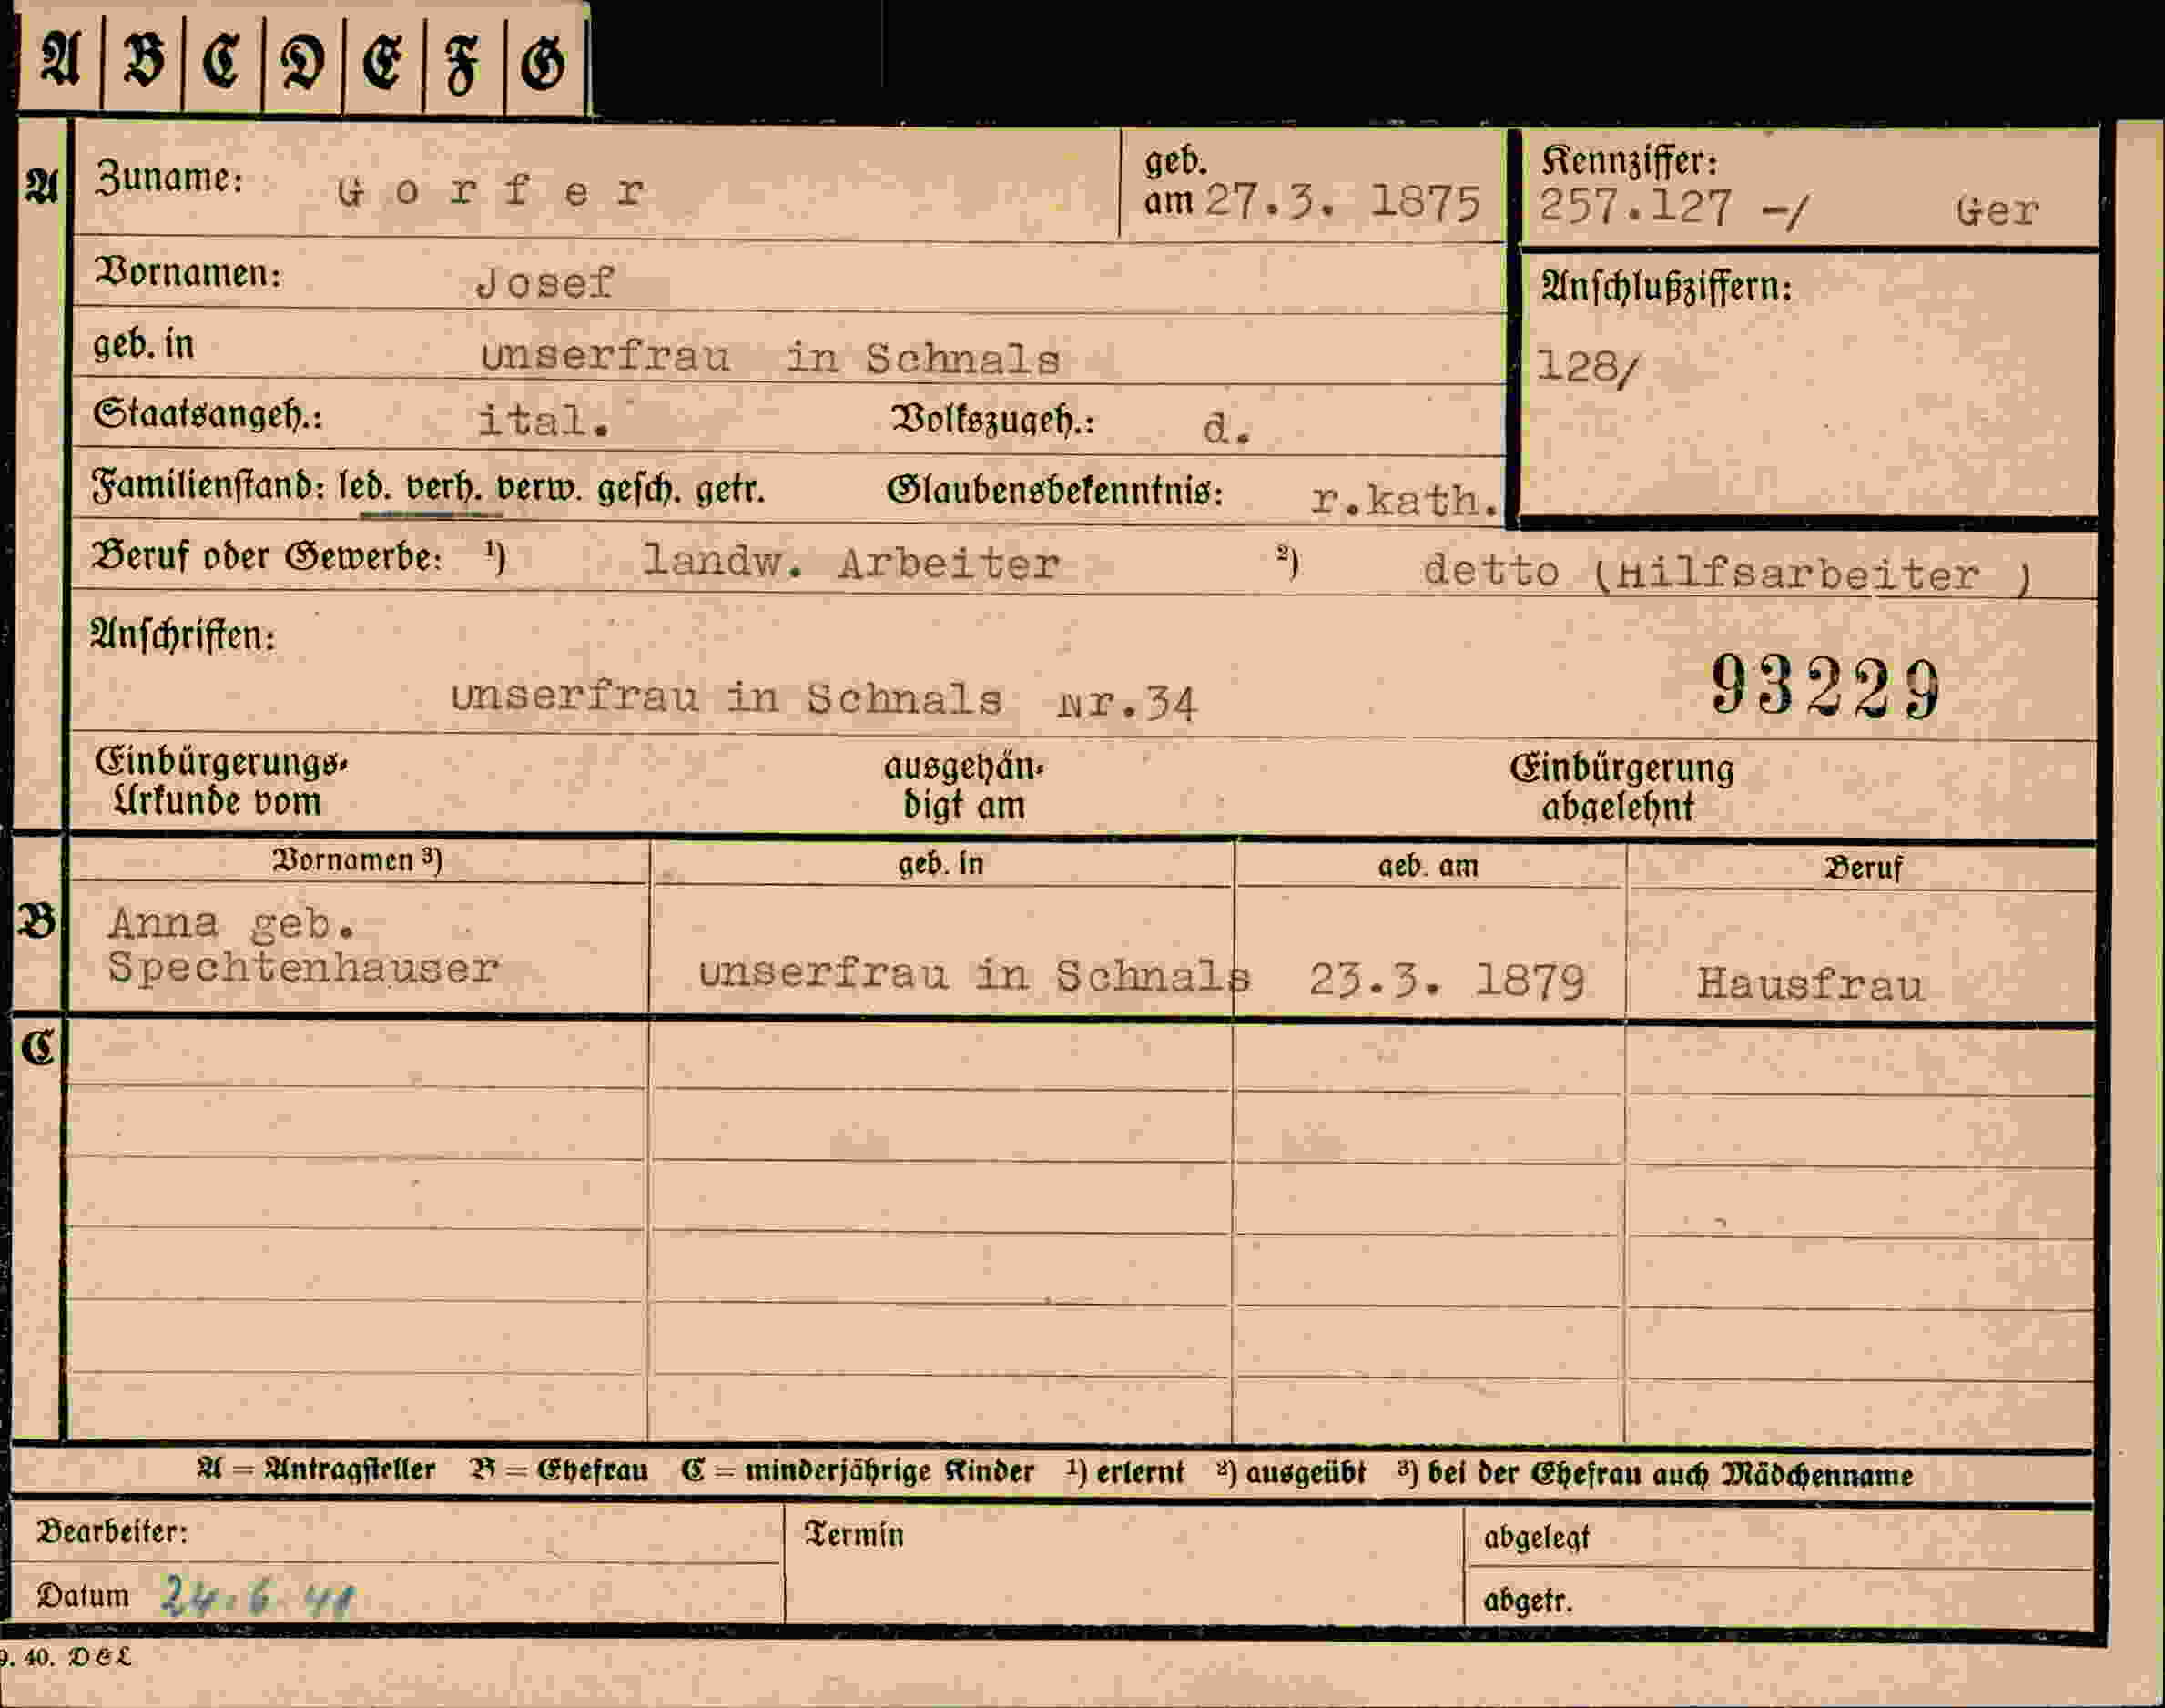 A B C D E F G
A Zuname: Gorfer geb. am 27.3. 1875 Kennziffer: 257.127 -/ Ger
Vornamen: Josef Anschlußziffern:
geb. in unserfrau in Schnals 128/
Staatsangeh.: ital. Volkszugeh.: d.
Familienstand: led. verh. verw. gesch. getr. Glaubensbekenntnis: r.kath.
Beruf oder Gewerbe: ¹) landw. Arbeiter ²) detto (Hilfsarbeiter )
Anschriften:
unserfrau in Schnals Nr.34 93229
Einbürgerungs- ausgehän- Einbürgerung
Urkunde vom digt am abgelehnt
Vornamen ³) geb. in geb. am Beruf
B Anna geb.
Spechtenhauser unserfrau in Schnals 23.3. 1879 Hausfrau
C
A = Antragsteller B = Ehefrau C = minderjährige Kinder ¹) erlernt ²) ausgeübt ³) bei der Ehefrau auch Mädchenname
Bearbeiter: Termin abgelegt
Datum 24.6.41 abgetr.
9. 40. DEL